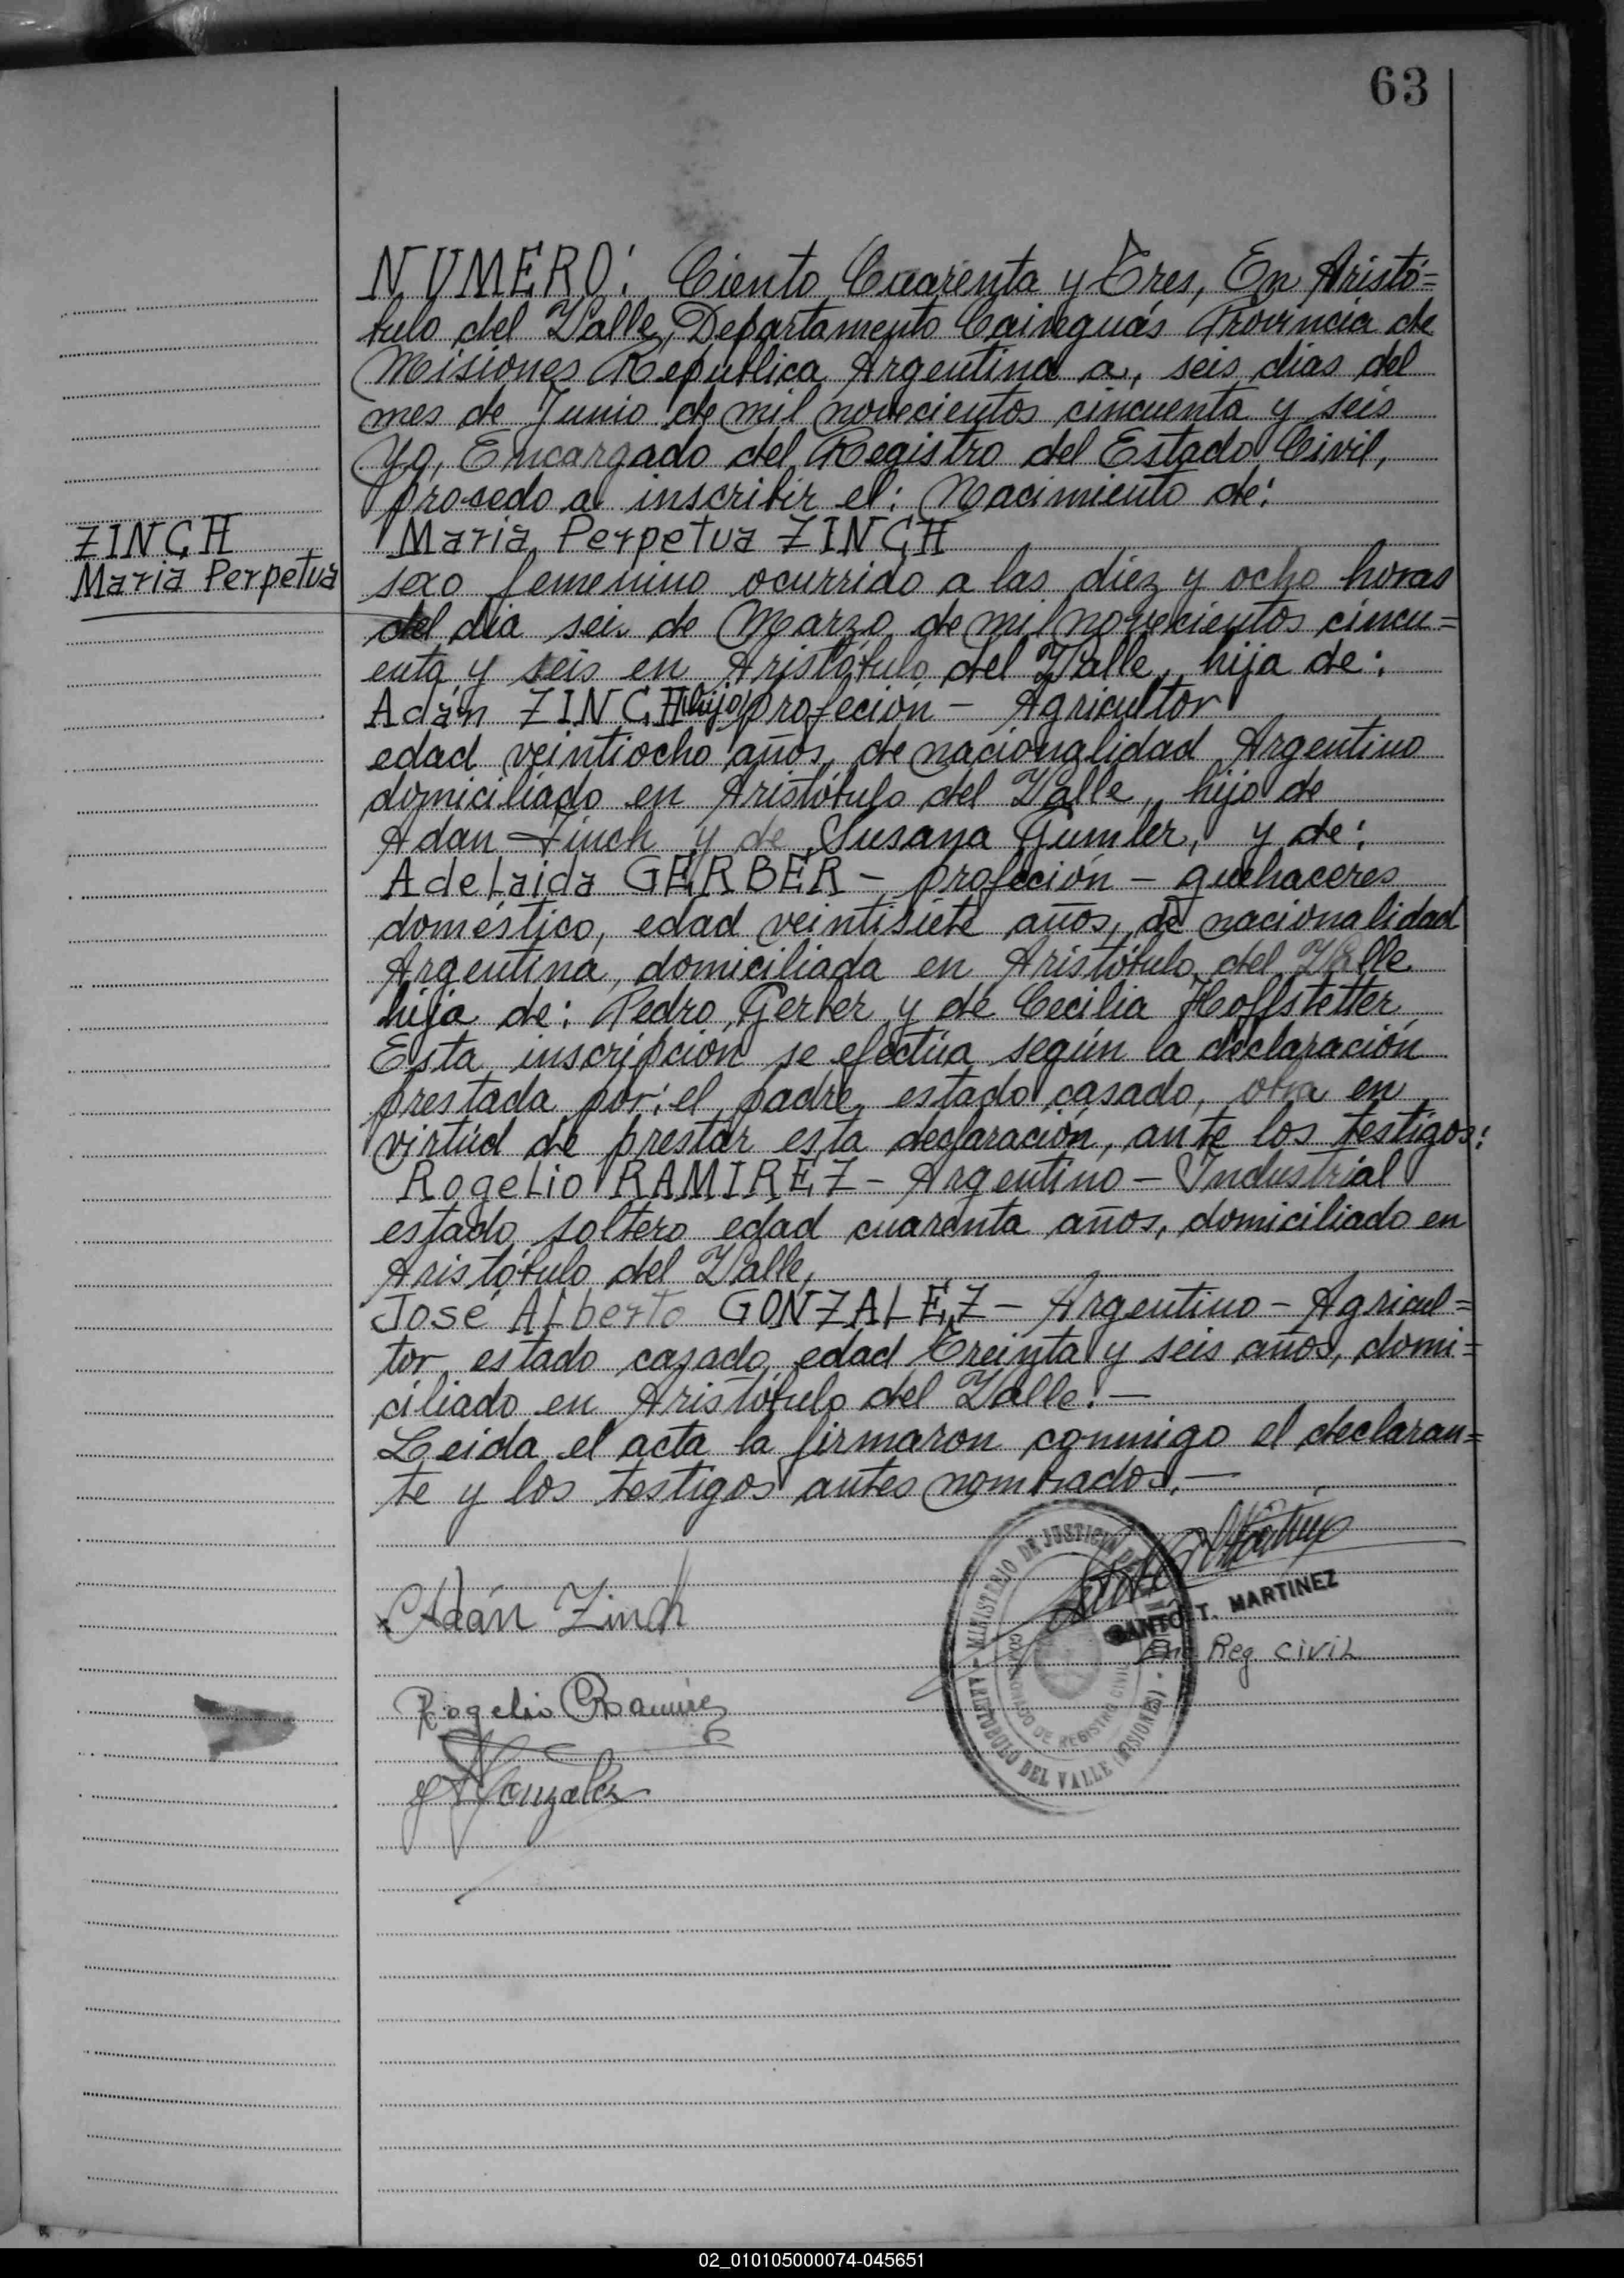 63
NUMERO: Ciento Cuarenta y Tres, En Aristó=
bulo del Valle, Departamento Cainguás Provincia de
Misiones República Argentina a, seis días del
mes de Junio de mil novecientos cincuenta y seis
Yo, Encargado del Registro del Estado Civil,
procedo a inscribir el: Nacimiento de:
ZINCH
Maria Perpetua
Maria Perpetua ZINCH
sexo femenino ocurrido a las diez y ocho horas
del día seis de Marzo de mil novecientos cincu=
enta y seis en Aristóbulo del Valle, hija de:
Adán ZINCH (hijo) profeción - Agricultor
edad veintiocho años, de nacionalidad Argentino
domiciliado en Aristóbulo del Valle, hijo de
Adan Zinch y de Susana Gumler, y de:
Adelaida GERBER - profeción - quehaceres
doméstico, edad veintisiete años, de nacionalidad
Argentina, domiciliada en Aristóbulo del Valle
hija de: Pedro Gerber y de Cecilia Hoffstetter
Esta inscripción se efectúa según la declaración
prestada por: el padre, estado casado, obra en
virtúd de prestar esta declaración, ante los testigos:
Rogelio RAMIREZ - Argentino - Industrial
estado soltero edad cuarenta años, domiciliado en
Aristóbulo del Valle,
José Alberto GONZALEZ - Argentino - Agricul=
tor, estado casado, edad Treinta y seis años, domi=
ciliado en Aristóbulo del Valle.-
Leida el acta la firmaron conmigo el declaran=
te y los testigos antes nombrados.-
Adán Zinch
MINISTERIO DE JUSTICIA
REGISTRO CIVIL
ARISTOBULO DEL VALLE (MISIONES)
SANTO T. MARTINEZ
Enc. Reg. Civil
Rogelio Ramirez
J A Gonzalez
02_010105000074-045651